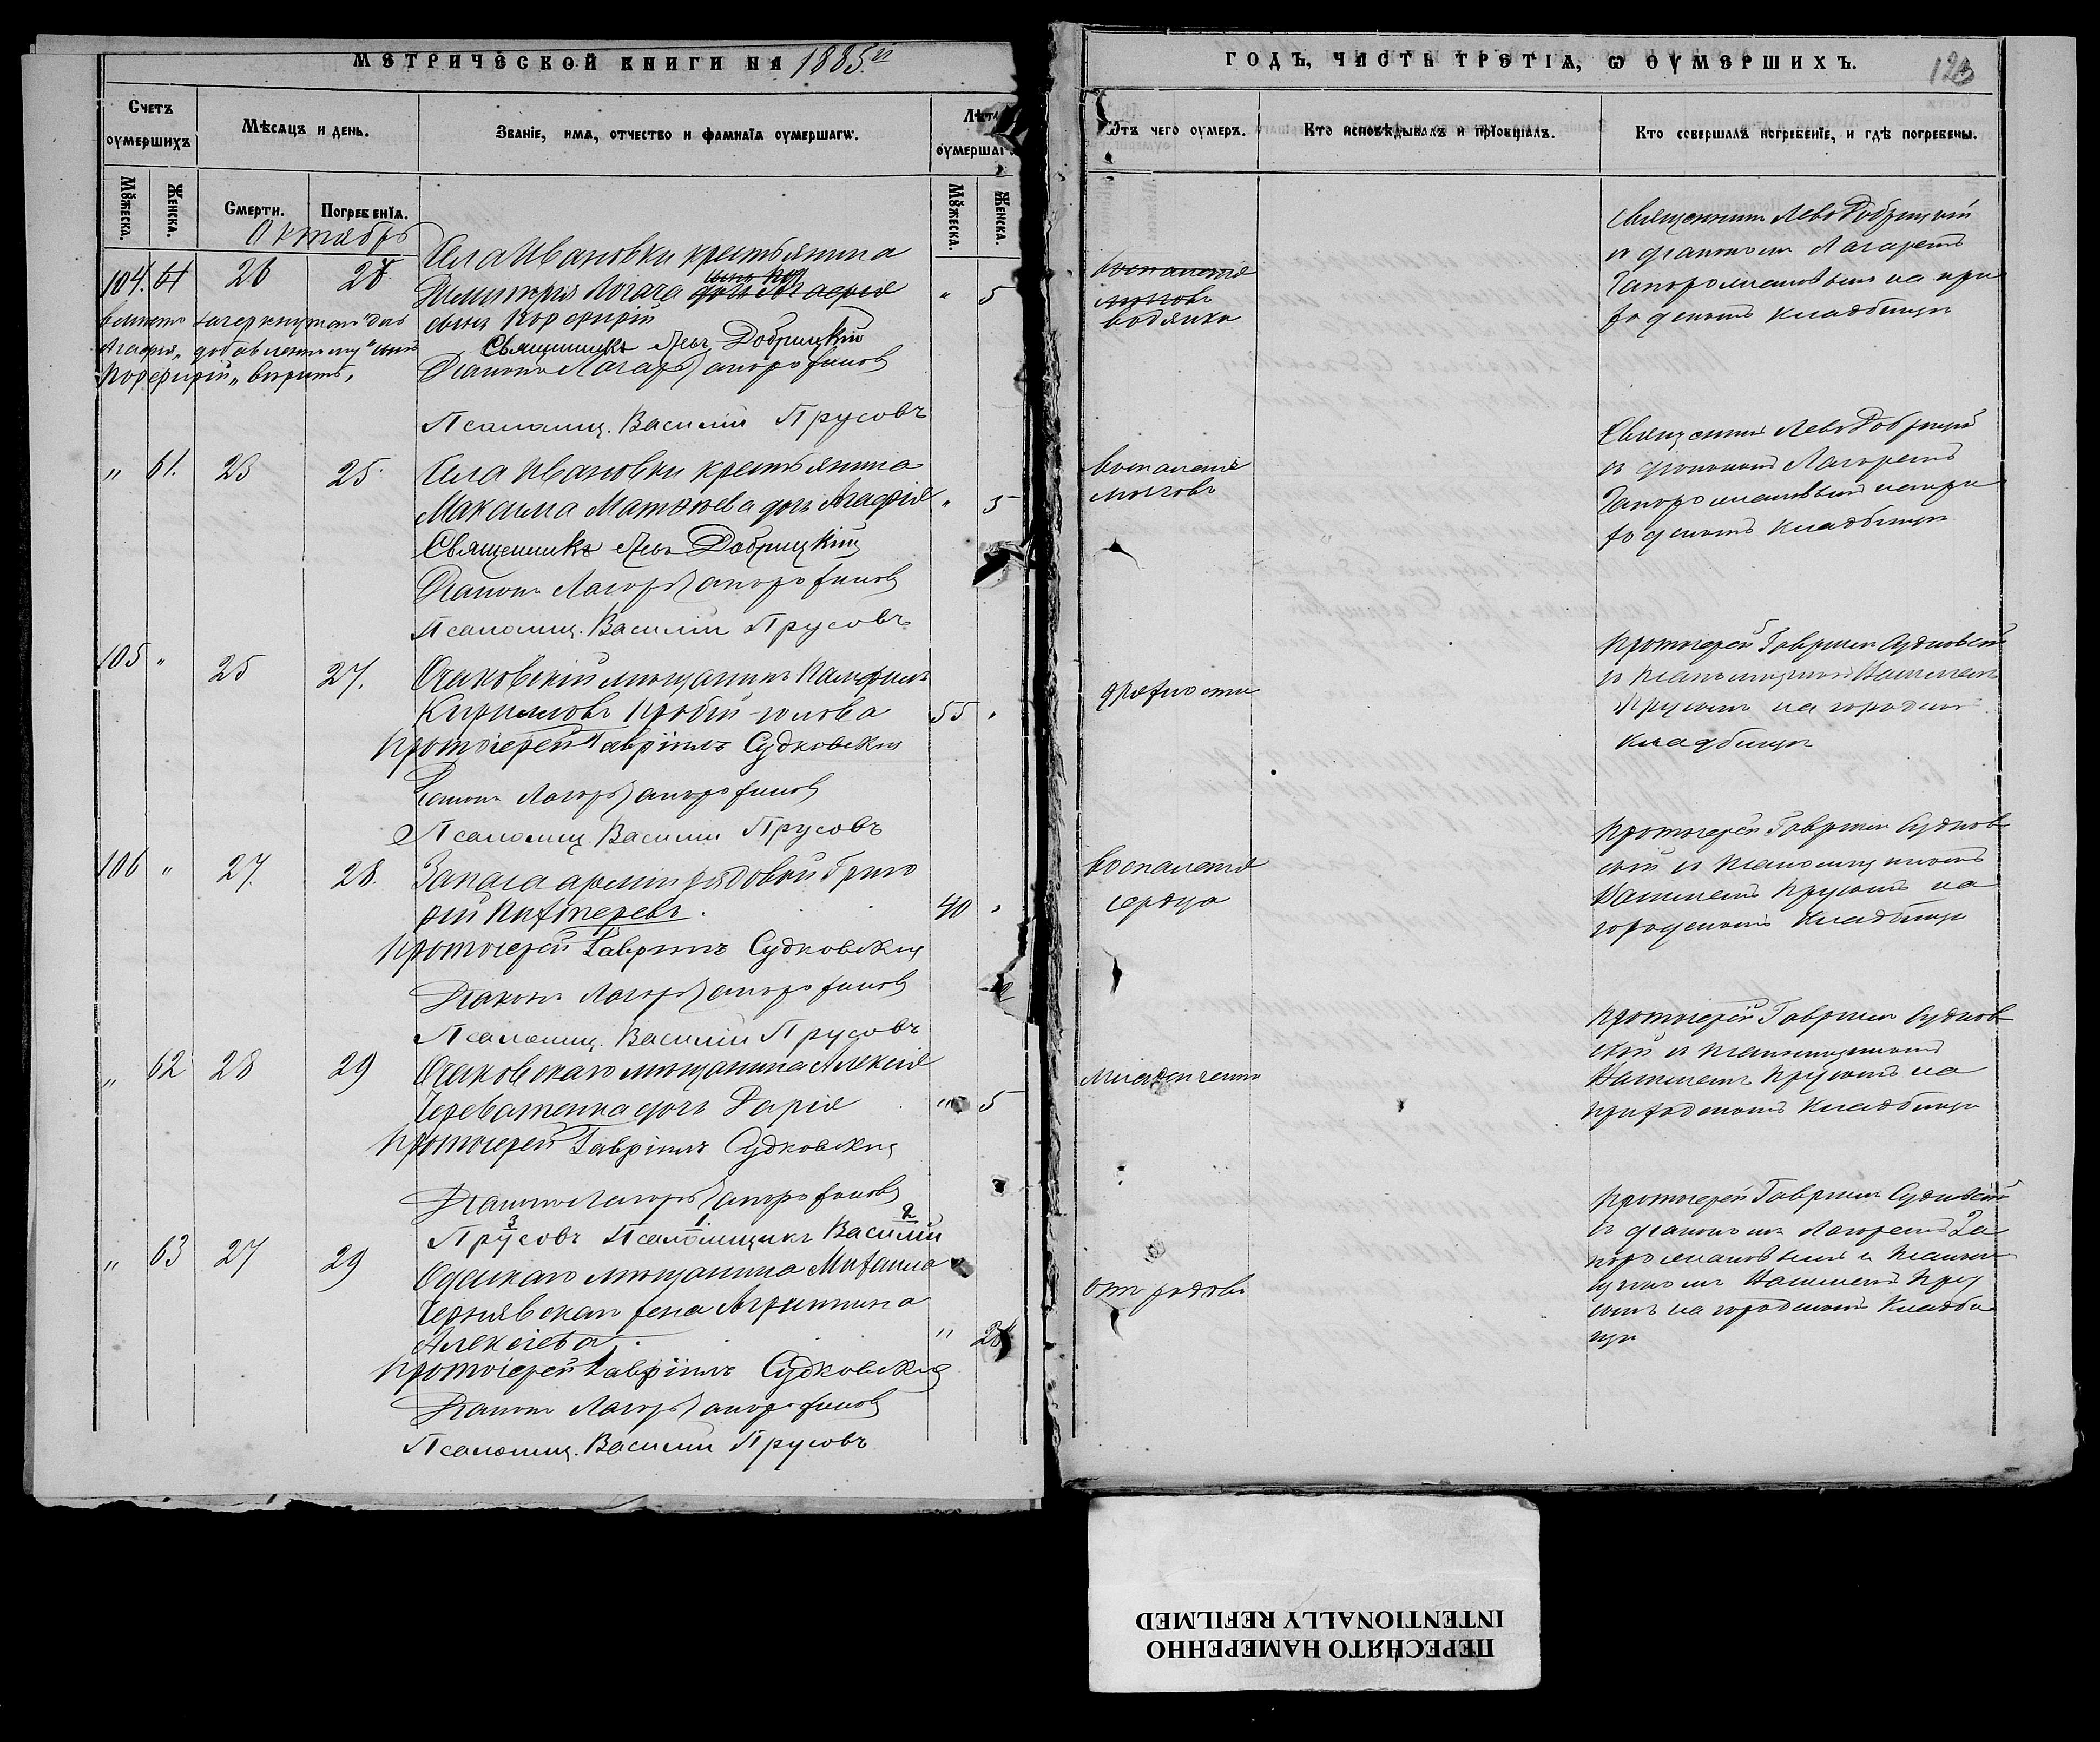 МЕТРИЧЕСКОЙ КНИГИ НА 1885й
ГОДЪ, ЧАСТЬ ТРЕТІѦ, Ѡ ОУМЕРШИХЪ.
Счетъ оумершихъ
Мѣсѧцъ и день.
Званіе, имѧ, отчество и фамиліѧ оумершагѡ.
Лѣта оумершаг
Отъ чего оумеръ.
Кто исповѣдывалъ и пріобщалъ.
Кто совершалъ погребеніе, и гдѣ погребены.
Мꙋжеска.
Женска.
Смерти.
Погребеніѧ.
Мꙋжеска.
Женска.
Октябрь
104. 26 28 Села Ивановки крестьянина
Димитрія Логача дочь Агафія " 5
сынъ Порфирій
вмѣсто зачеркнутаго "дочь
Агафія" добавленному "сынъ
Порфирій" вѣрить,
Священникъ Левъ Добрицкій
Діаконъ Лазарь Запорожановъ
Псаломщ. Василій Прусовъ
воспаленіе
мозговъ
водянка
Священникъ Левъ Добрицкій
съ діакономъ Лазаремъ
Запорожановымъ на при
ходскомъ кладбищѣ
" 61. 23 25. Села Ивановки крестьянина
Максима Матѳѣева дочь Агафія " 5
Священникъ Левъ Добрицкій
Діаконъ Лазарь Запорожановъ
Псаломщ. Василій Прусовъ
воспаленіе
мозговъ
Священникъ Левъ Добрицкій
съ діакономъ Лазаремъ
Запорожановымъ на при
ходскомъ кладбищѣ
105 " 25 27. Очаковскій мѣщанинъ Памфилъ
Кирилловъ Пробій-голова 55 "
Протоіерей Гавріилъ Судковскій
Діаконъ Лазарь Запорожановъ
Псаломщ. Василій Прусовъ
Протоіерей Гавріилъ Судковскій
съ псаломщикомъ Василіемъ
Прусовымъ на городскомъ
кладбищѣ
106 " 27. 28. Запаса арміи рядовой Григо
рій Пихтеревъ. 40 "
Протоіерей Гавріилъ Судковскій
Діаконъ Лазарь Запорожановъ
Псаломщ. Василій Прусовъ
воспаленіе
сердца
Протоіерей Гавріилъ Судков
скій съ псаломщикомъ
Василіемъ Прусовымъ на
городскомъ кладбищѣ
" 62 28 29 Очаковскаго мѣщанина Алексія
Череватенка дочь Дарія " 5
Протоіерей Гавріилъ Судковскій
Діаконъ Лазарь Запорожановъ
Прусовъ Псаломщикъ Василій
3 1 2
Протоіерей Гавріилъ Судков
скій съ псаломщикомъ
Василіемъ Прусовымъ на
приходскомъ кладбищѣ
" 63 27 29 Одесскаго мѣщанина Михаила
Чернявскаго жена Агриппина
Алексіева. "
Протоіерей Гавріилъ Судковскій
Діаконъ Лазарь Запорожановъ
Псаломщ. Василій Прусовъ
отъ родовъ
Протоіерей Гавріилъ Судковскій
съ діакономъ Лазаремъ За
порожановымъ и псалом
щикомъ Василіемъ Прус
овымъ на городскомъ кладби
щѣ
ПЕРЕСНЯТО НАМЕРЕННО
INTENTIONALLY REFILMED